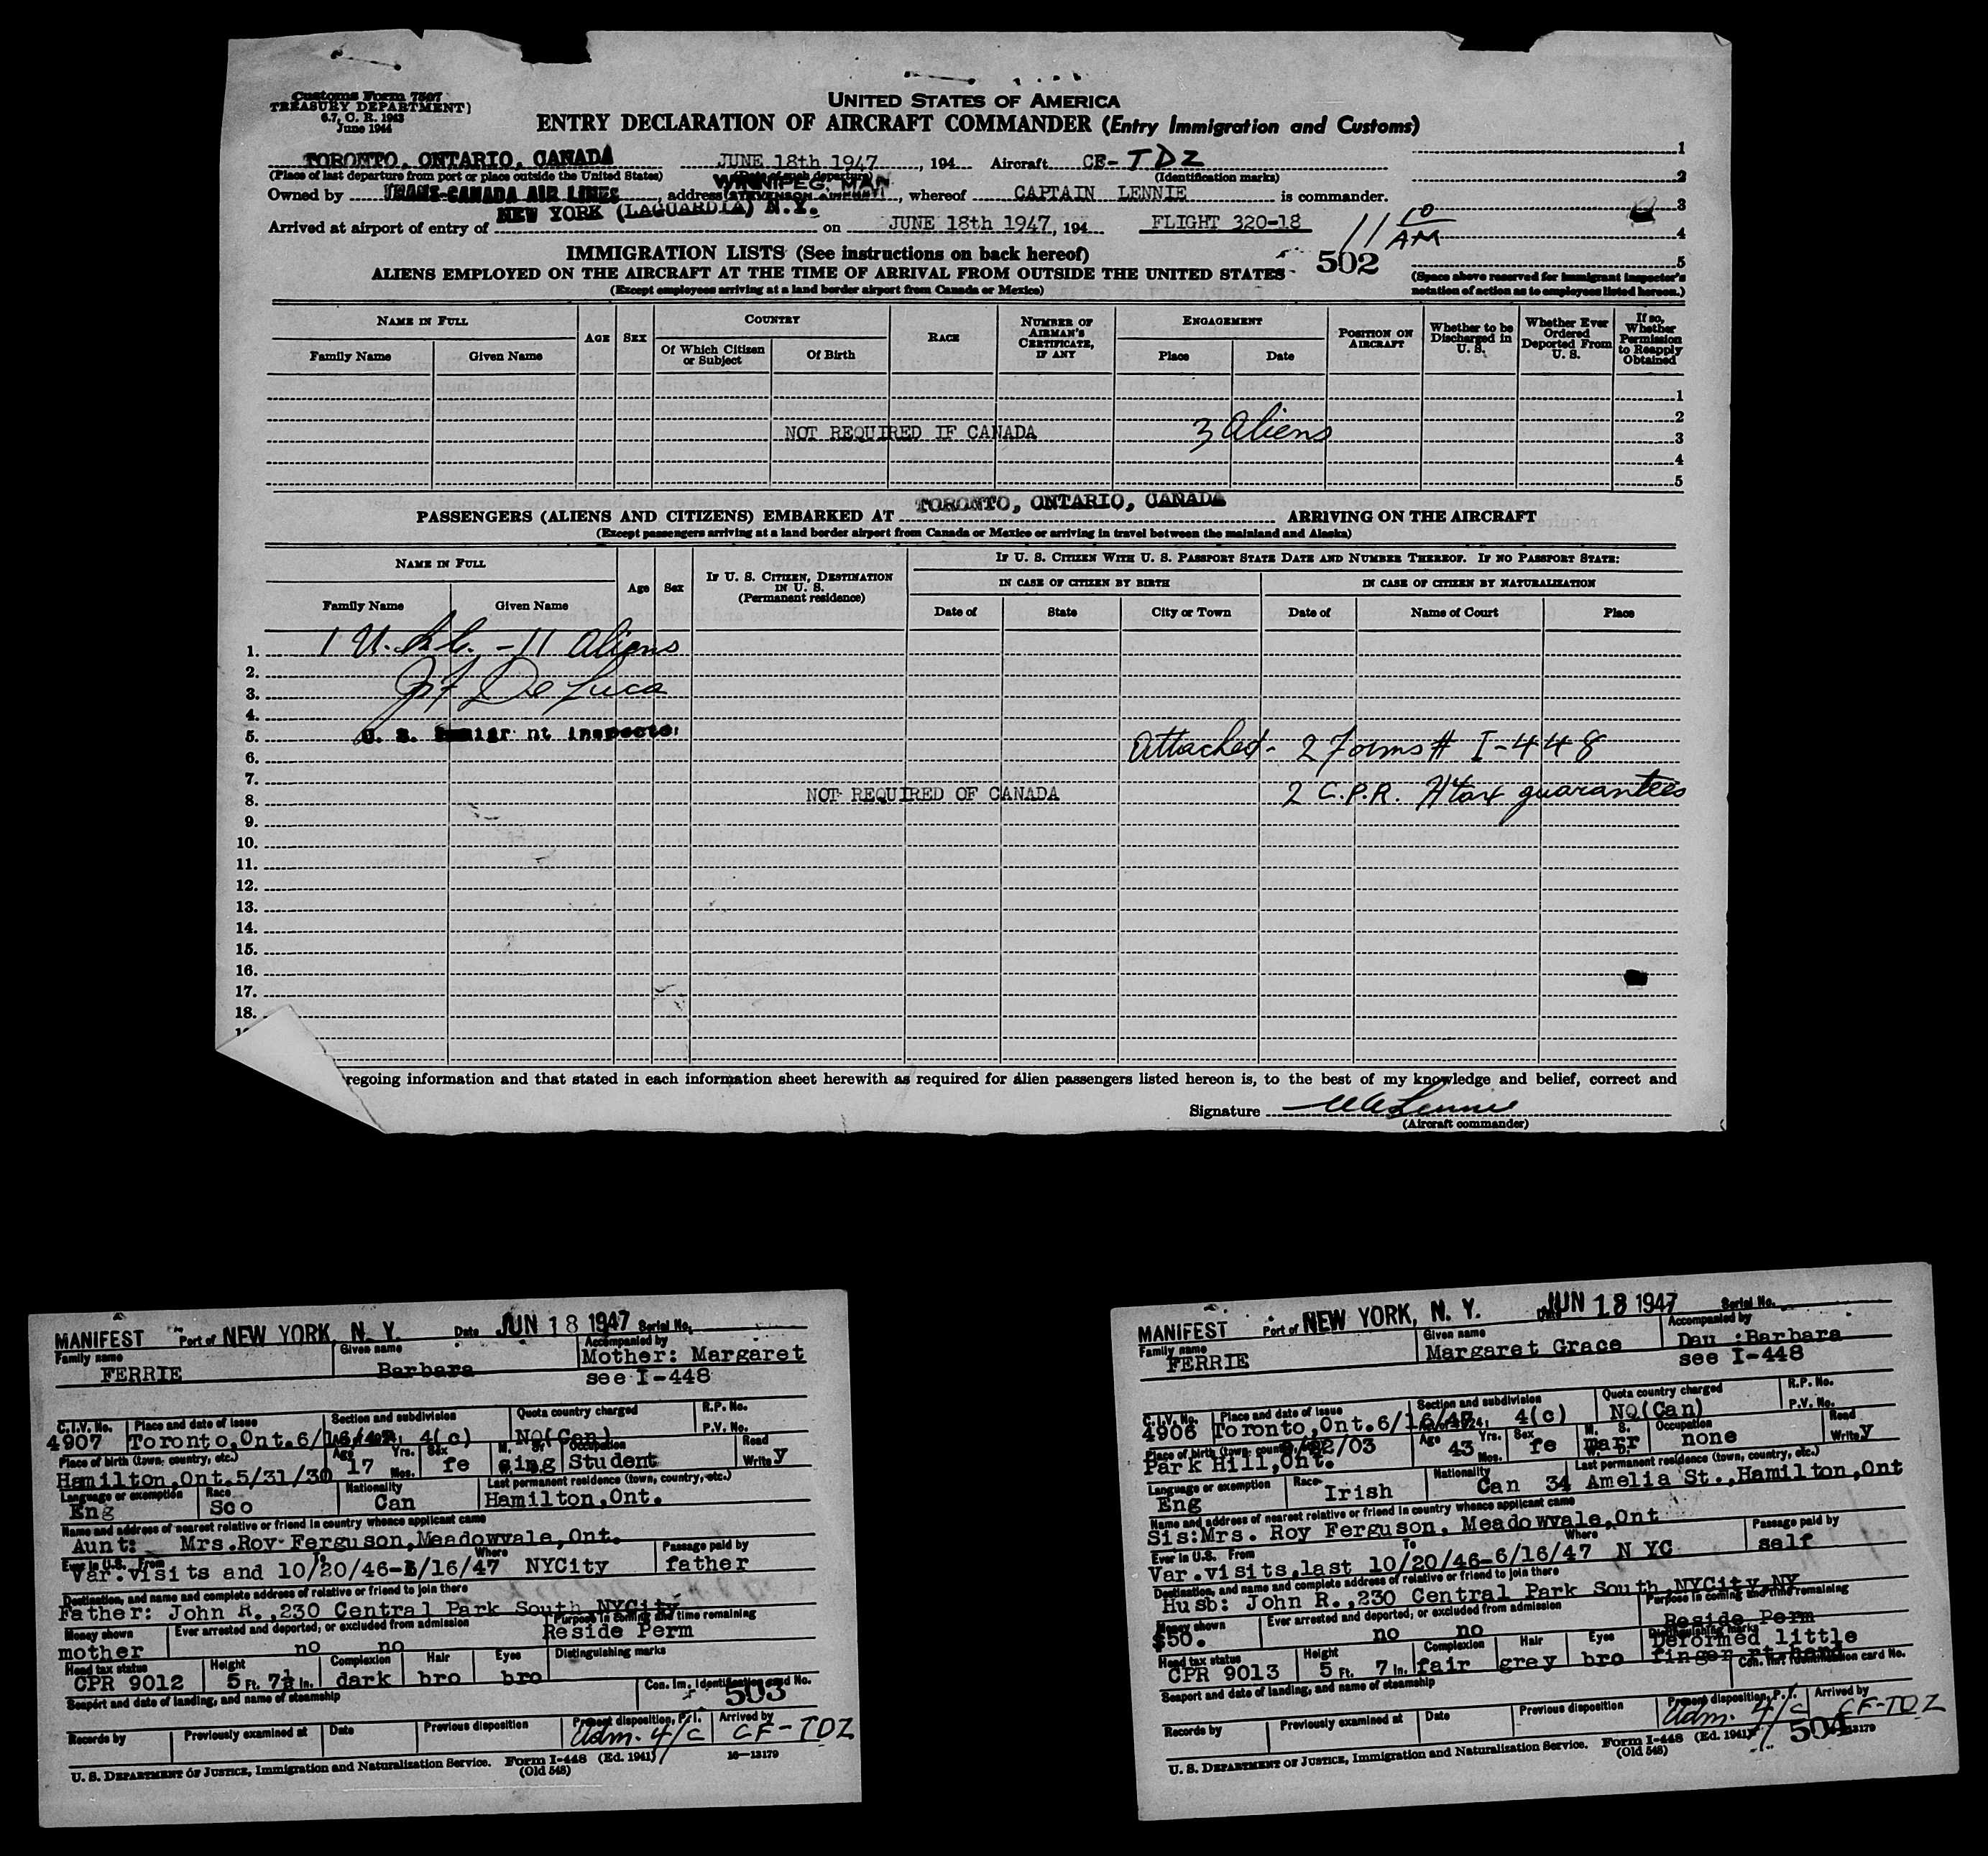 Customs Form 7507
TREASURY DEPARTMENT)
6.7, C. R. 1943
June 1944
UNITED STATES OF AMERICA
ENTRY DECLARATION OF AIRCRAFT COMMANDER (Entry Immigration and Customs)
TORONTO, ONTARIO, CANADA JUNE 18th 1947, 194 Aircraft CE-TDZ 1
(Place of last departure from port or place outside the United States) (Identification marks) 2
Owned by TRANS-CANADA AIR LINES, address WINNIPEG, MAN, whereof CAPTAIN LENNIE is commander. 3
NEW YORK (LAGUARDIA) N.Y.
Arrived at airport of entry of on JUNE 18th 1947, 194 FLIGHT 320-18 11 10 AM 4
IMMIGRATION LISTS (See instructions on back hereof) 502 5
ALIENS EMPLOYED ON THE AIRCRAFT AT THE TIME OF ARRIVAL FROM OUTSIDE THE UNITED STATES
(Space above reserved for immigrant inspector's notation of action as to employees listed hereon.)
(Except employees arriving at a land border airport from Canada or Mexico)
NAME IN FULL AGE SEX COUNTRY RACE NUMBER OF AIRMAN'S CERTIFICATE, IF ANY ENGAGEMENT POSITION ON AIRCRAFT Whether to be Discharged in U. S. Whether Ever Ordered Deported From U. S. If so, Whether Permission to Reapply Obtained
Family Name Given Name Of Which Citizen or Subject Of Birth Place Date
1
2
NOT REQUIRED IF CANADA 3 Aliens 3
4
5
TORONTO, ONTARIO, CANADA
PASSENGERS (ALIENS AND CITIZENS) EMBARKED AT ARRIVING ON THE AIRCRAFT
(Except passengers arriving at a land border airport from Canada or Mexico or arriving in travel between the mainland and Alaska)
NAME IN FULL Age Sex IF U. S. CITIZEN, DESTINATION IN U. S. (Permanent residence) IF U. S. CITIZEN WITH U. S. PASSPORT STATE DATE AND NUMBER THEREOF. IF NO PASSPORT STATE:
IN CASE OF CITIZEN BY BIRTH IN CASE OF CITIZEN BY NATURALIZATION
Family Name Given Name Date of State City or Town Date of Name of Court Place
1. 1 U.S.C. - 11 Aliens
2.
3. De Luca
4.
5. U. S. Immigr nt Inspector
6. Attached - 2 Forms # I-448
7.
8. NOT REQUIRED OF CANADA 2 C.P.R. H tax guarantees
9.
10.
11.
12.
13.
14.
15.
16.
17.
18.
regoing information and that stated in each information sheet herewith as required for alien passengers listed hereon is, to the best of my knowledge and belief, correct and
Signature Lennie
(Aircraft commander)
MANIFEST Port of NEW YORK, N. Y. Date JUN 18 1947 Serial No.
Family name Given name Accompanied by
FERRIE Barbara Mother: Margaret
see I-448
C.I.V. No. Place and date of issue Section and subdivision Quota country charged R.P. No.
4907 Toronto,Ont.6/16/47 4(c) NQ(Can) P.V. No.
Place of birth (town, country, etc.) Age Yrs. Mos. Sex M. S. Occupation Read Write
Hamilton,Ont.5/31/30 17 fe sing Student y
Language or exemption Race Nationality Last permanent residence (town, country, etc.)
Eng Sco Can Hamilton,Ont.
Name and address of nearest relative or friend in country whence applicant came
Aunt: Mrs.Roy Ferguson,Meadowvale,Ont.
Ever in U.S. From To Where Passage paid by
Var.visits and 10/20/46-6/16/47 NYCity father
Destination, and name and complete address of relative or friend to join there
Father: John R.,230 Central Park South NYCity
Money shown Ever arrested and deported, or excluded from admission Purpose in coming and time remaining
mother no no Reside Perm
Head tax status Height Complexion Hair Eyes Distinguishing marks
CPR 9012 5 Ft. 7½ In. dark bro bro
Seaport and date of landing, and name of steamship Con. Im. Identification card No.
503
Records by Previously examined at Date Previous disposition Present disposition, P.I. Arrived by
Adm. 4/c CF-TDZ
U. S. DEPARTMENT OF JUSTICE, Immigration and Naturalization Service. Form I-448 (Ed. 1941) 16-13179
(Old 548)
MANIFEST Port of NEW YORK, N. Y. Date JUN 18 1947 Serial No.
Family name Given name Accompanied by
FERRIE Margaret Grace Dau :Barbara
see I-448
C.I.V. No. Place and date of issue Section and subdivision Quota country charged R.P. No.
4906 Toronto,Ont.6/16/47 4(c) NQ(Can) P.V. No.
Place of birth (town, country, etc.) Age Yrs. Mos. Sex M. S. W. D. Occupation Read Write
Park Hill,Ont. 43 fe marr none y
Language or exemption Race Nationality Last permanent residence (town, country, etc.)
Eng Irish Can 34 Amelia St.,Hamilton,Ont
Name and address of nearest relative or friend in country whence applicant came
Sis:Mrs. Roy Ferguson, Meadowvale,Ont
Ever in U.S. From To Where Passage paid by
Var.visits,last 10/20/46-6/16/47 N YC self
Destination, and name and complete address of relative or friend to join there
Husb: John R.,230 Central Park South,NYCity,NY
Money shown Ever arrested and deported, or excluded from admission Purpose in coming and time remaining
$50. no no Reside Perm
Head tax status Height Complexion Hair Eyes Distinguishing marks
CPR 9013 5 Ft. 7 In. fair grey bro Deformed little finger rt.hand
Seaport and date of landing, and name of steamship Con. Im. Identification card No.
Records by Previously examined at Date Previous disposition Present disposition, P.I. Arrived by
Adm. 4/c CF-TDZ
504
U. S. DEPARTMENT OF JUSTICE, Immigration and Naturalization Service. Form I-448 (Ed. 1941) 13179
(Old 548)